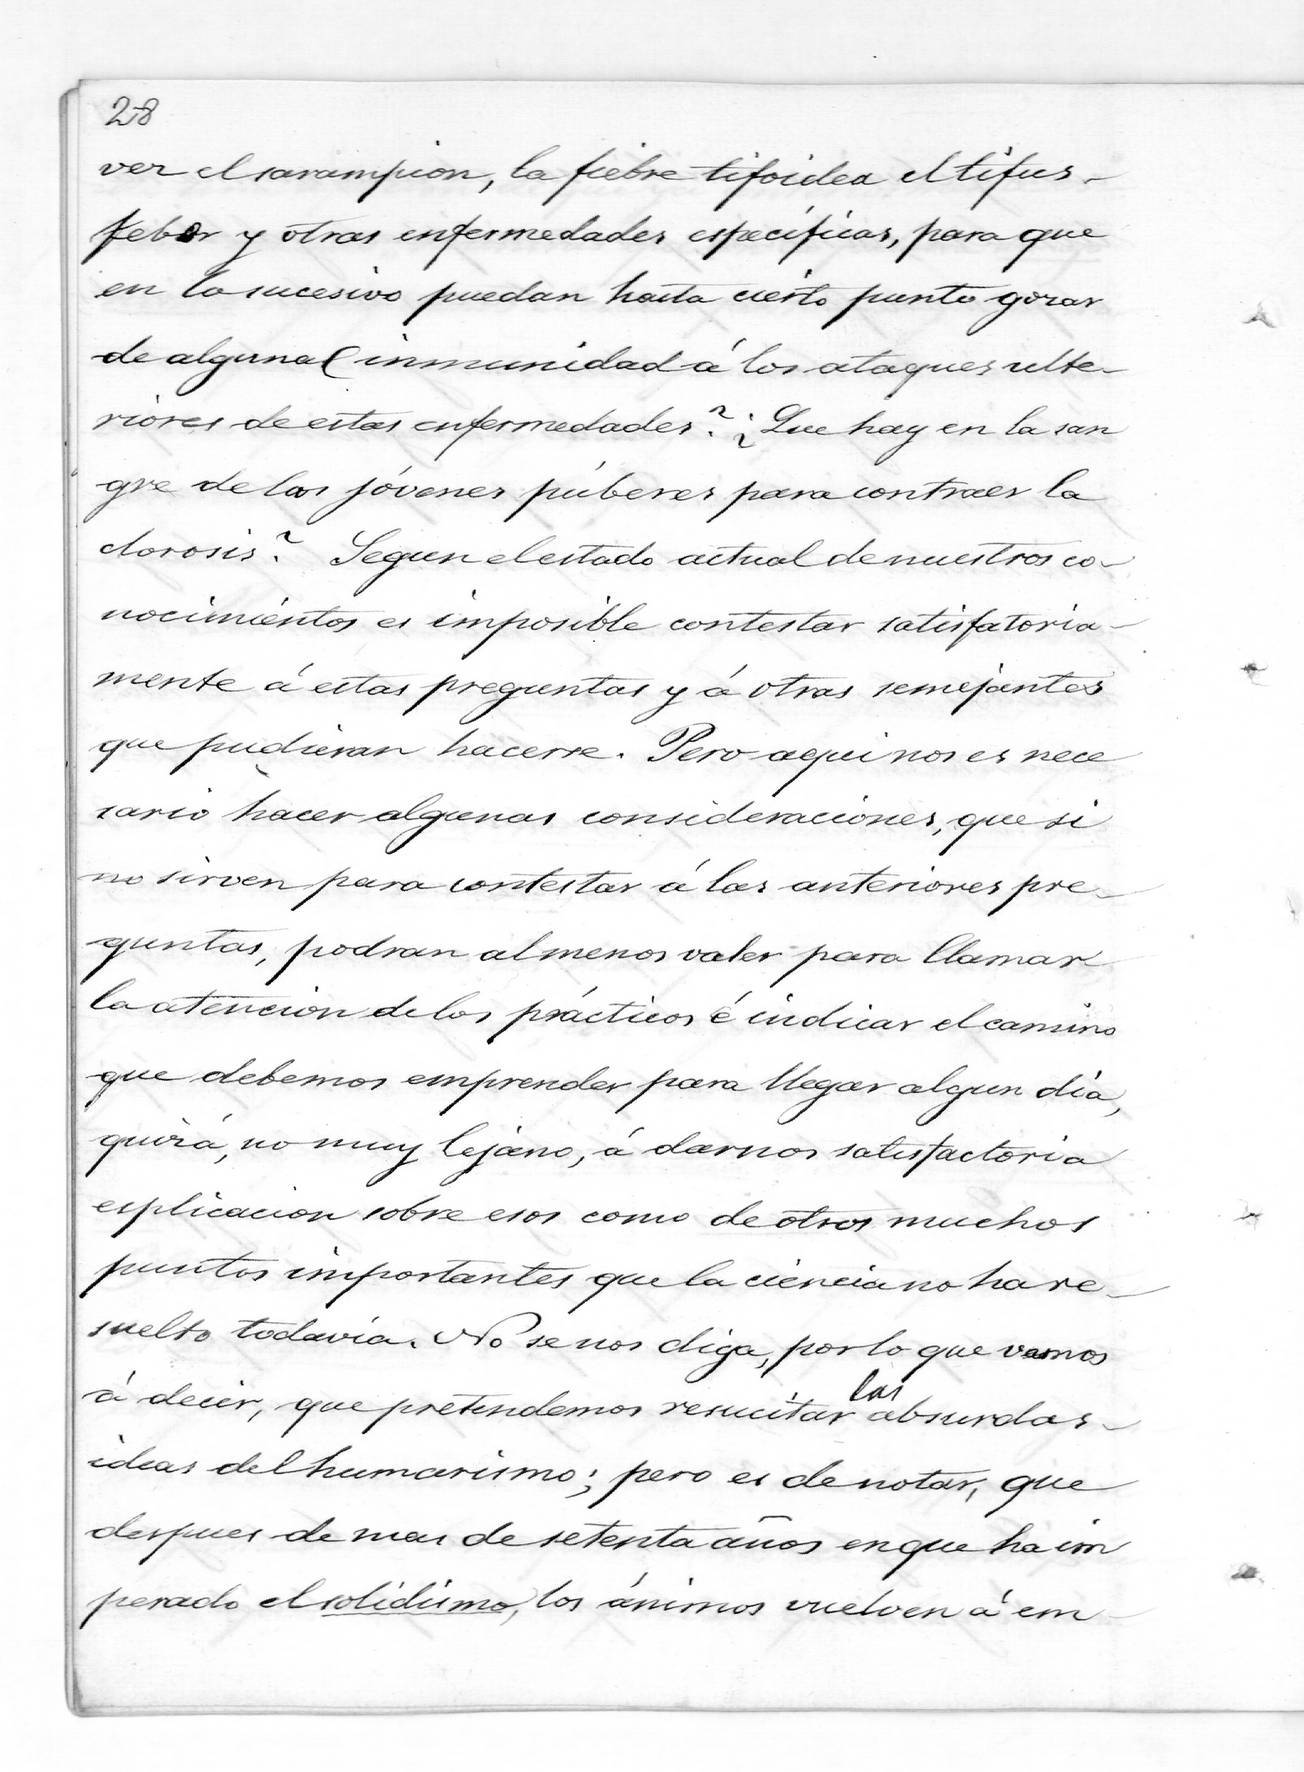 28
ver el sarampion, la fiebre tifoidea el tifus
feber y otras enfermedades específicas, para que
en lo sucesivo puedan hasta cierto punto gozar
de alguna inmunidad á los ataques ulte-
riores de estas enfermedades? ¿Que hay en la san
gre de las jóvenes púberes para contraer la
clorosis? Segun el estado actual de nuestros co-
nocimientos es imposible contestar satisfatoria-
mente á estas preguntas y á otras semejantes
que pudieran hacerse. Pero aqui nos es nece
sario hacer algunas consideraciones, que si
no sirven para contestar á las anteriores pre-
guntas, podran al menos valer para llamar
la atencion de los prácticos é indicar el camino
que debemos emprender para llegar algun dia,
quizá, no muy lejano, á darnos satisfactoria
esplicacion sobre esos como de otros muchos
puntos importantes que la ciencia no ha re-
suelto todavia. No se nos diga, por lo que vamos
á decir, que pretendemos resucitar las absurdas
ideas del humorismo; pero es de notar, que
despues de mas de setenta años en que ha im
perado el solidismo, los ánimos vuelven á em-